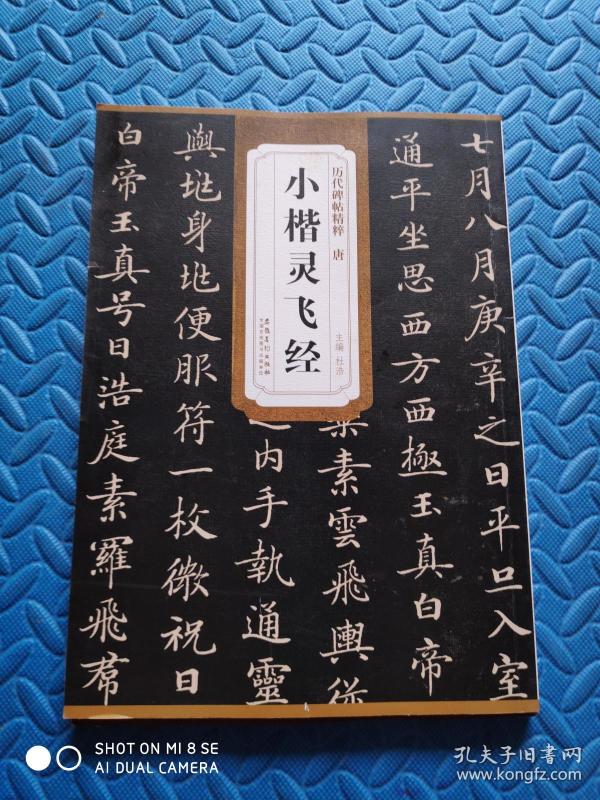 历代碑帖精粹 唐
小楷灵飞经
主编 杜浩
安徽美术出版社
七月八月庚辛之日平旦入室
通平坐思西方西極玉真白帝
素雲飛輿從
之内手執通靈
與此身此便服符一枚微祝曰
白帝玉真号曰浩庭素羅飛帬
SHOT ON MI 8 SE
AI DUAL CAMERA
孔夫子旧书网
www.kongfz.com